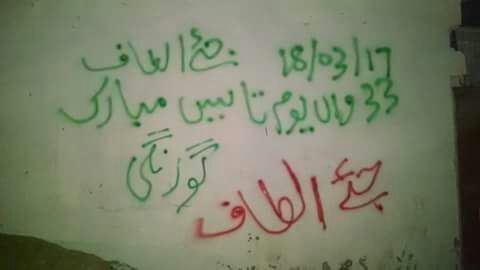 18/03/17 جئے الطاف
33 واں یوم تاسیس مبارک
کورنگی
جئے الطاف